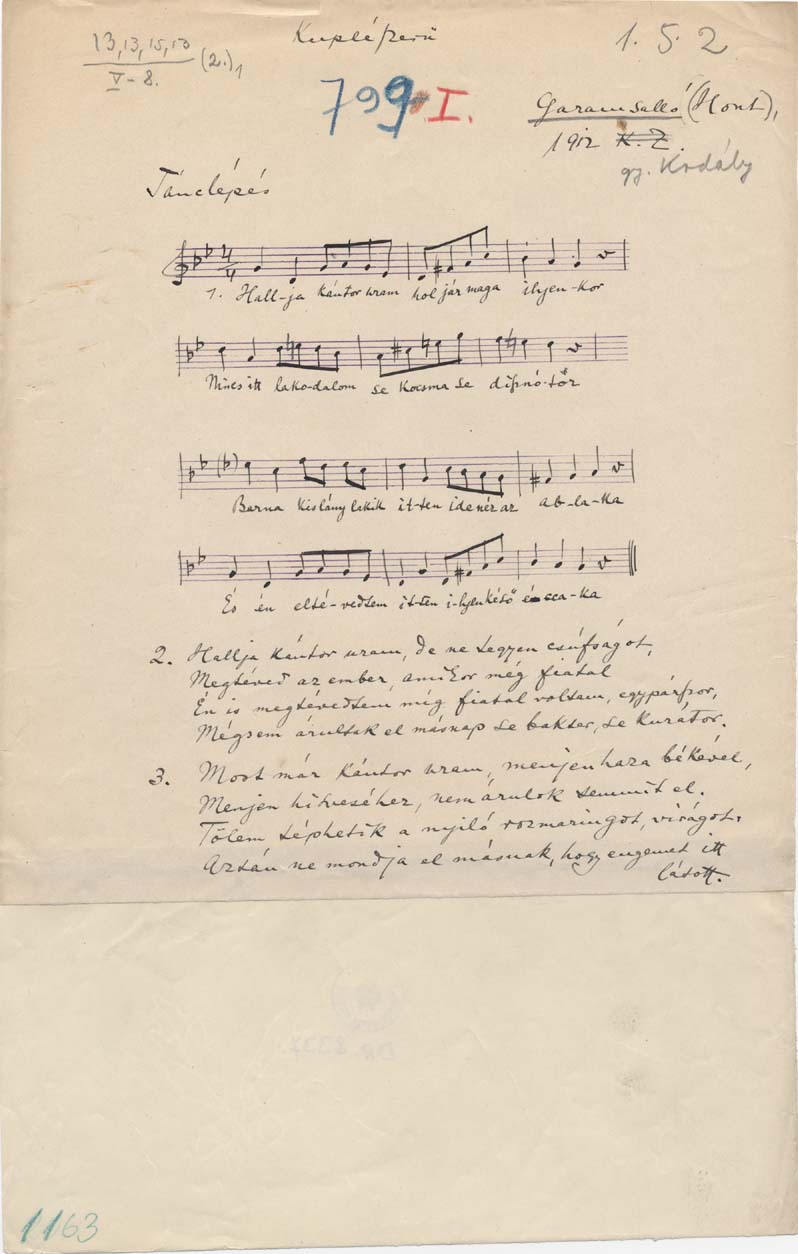 13, 13, 15, 13
V-8. (2.)1
Kuplészerű
1. 5. 2
799 I.
Garamsalló (Hont),
1912 K. Z.
gy. Kodály
Tánclépés
4/4
1. Hall-ja kántor uram hol jár maga ilyen-kor
Nincs itt lako-dalom se kocsma se disznó-tőr
Barna kislány lakik it-ten ide néz az ab-la-ka
És én elté-vedtem it-ten i-lyen késő é-cca-ka
2. Hallja kántor uram, de ne tegyen csúfságot,
Megtéved az ember, amikor még fiatal
Én is megtévedtem míg fiatal voltam, egypárszor,
Mégsem árultak el másnap se bakter, se kurátor.
3. Most már kántor uram, menjen haza békével,
Menjen hitveséhez, nem árulok semmit el.
Tőlem téphetik a nyiló rozmaringot, virágot,
Aztán ne mondja el másnak, hogy engemet itt
látott.
1163